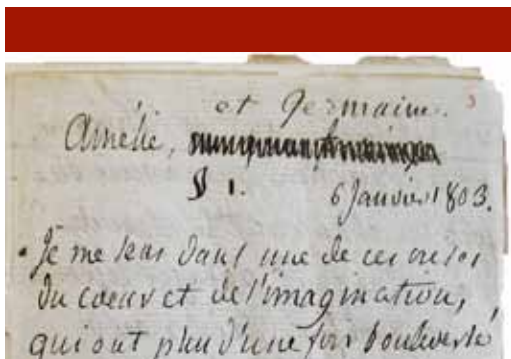 et Germaine. 3
Amélie,
§ 1.
6 Janvier 1803.
Je me sens dans une de ces crises
du cœur et de l'imagination,
qui ont plus d'une fois bouleversé